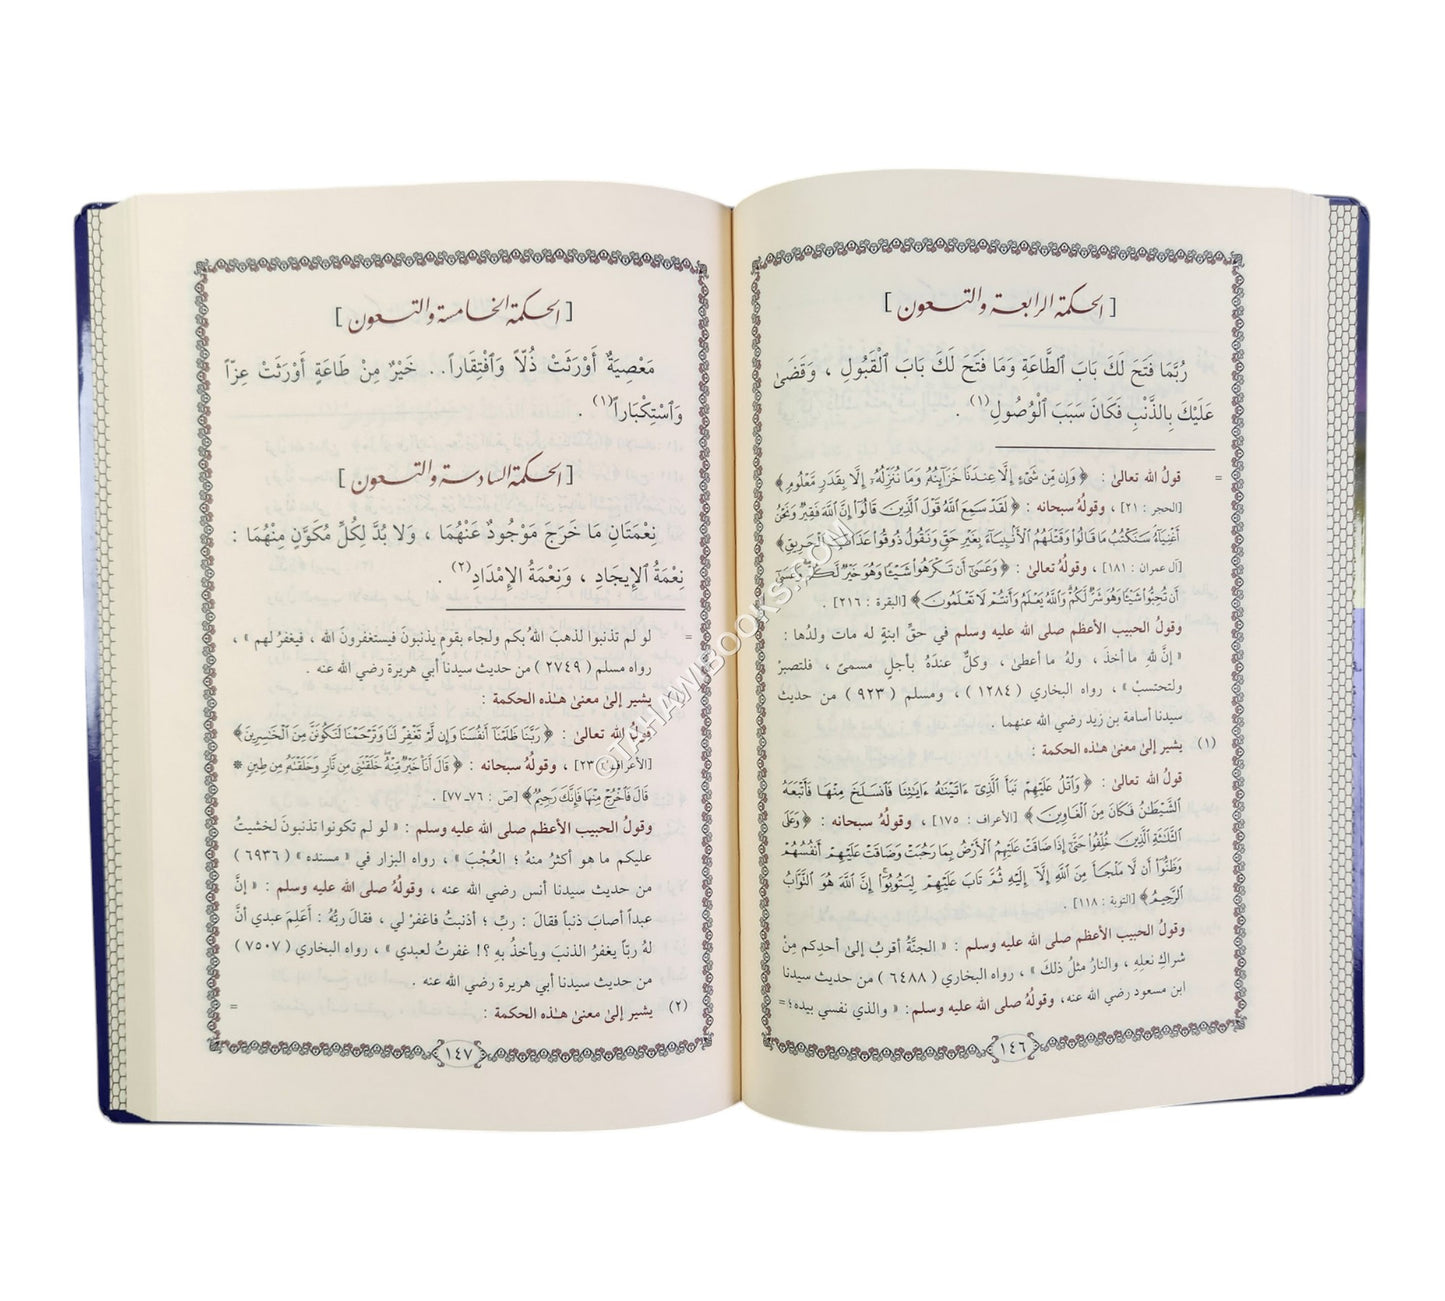 [ الحكمة الرابعة والتسعون ]
رُبَّمَا فَتَحَ لَكَ بَابَ ٱلطَّاعَةِ وَمَا فَتَحَ لَكَ بَابَ ٱلْقَبُولِ ، وَقَضَىٰ
عَلَيْكَ بِالذَّنْبِ فَكَانَ سَبَبَ ٱلْوُصُولِ(١) .
= قولُ الله تعالىٰ : ﴿ وَإِن مِّن شَىْءٍ إِلَّا عِندَنَا خَزَآئِنُهُۥ وَمَا نُنَزِّلُهُۥٓ إِلَّا بِقَدَرٍ مَّعْلُومٍ ﴾
[الحجر : ٢١] ، وقولُهُ سبحانه : ﴿ لَقَدْ سَمِعَ ٱللَّهُ قَوْلَ ٱلَّذِينَ قَالُوٓا۟ إِنَّ ٱللَّهَ فَقِيرٌ وَنَحْنُ
أَغْنِيَآءُ سَنَكْتُبُ مَا قَالُوا۟ وَقَتْلَهُمُ ٱلْأَنۢبِيَآءَ بِغَيْرِ حَقٍّ وَنَقُولُ ذُوقُوا۟ عَذَابَ ٱلْحَرِيقِ﴾
[آل عمران : ١٨١] ، وقولُهُ تعالىٰ : ﴿ وَعَسَىٰٓ أَن تَكْرَهُوا۟ شَيْـًٔا وَهُوَ خَيْرٌ لَّكُمْ وَعَسَىٰٓ
أَن تُحِبُّوا۟ شَيْـًٔا وَهُوَ شَرٌّ لَّكُمْ وَٱللَّهُ يَعْلَمُ وَأَنتُمْ لَا تَعْلَمُونَ﴾ [البقرة : ٢١٦] .
وقولُ الحبيب الأعظم صلى الله عليه وسلم في حقِّ ابنةٍ له مات ولدُها :
« إنَّ للهِ ما أخذَ ، ولهُ ما أعطىٰ ، وكلٌّ عندَهُ بأجلٍ مسمىً ، فلتصبرْ
ولتحتسبْ » ، رواه البخاري ( ١٢٨٤ ) ، ومسلم ( ٩٢٣ ) من حديث
سيدنا أسامة بن زيد رضي الله عنهما .
(١) يشير إلىٰ معنىٰ هـٰذه الحكمة :
قولُ الله تعالىٰ : ﴿ وَٱتْلُ عَلَيْهِمْ نَبَأَ ٱلَّذِىٓ ءَاتَيْنَـٰهُ ءَايَـٰتِنَا فَٱنسَلَخَ مِنْهَا فَأَتْبَعَهُ
ٱلشَّيْطَـٰنُ فَكَانَ مِنَ ٱلْغَاوِينَ﴾ [الأعراف : ١٧٥] ، وقولُهُ سبحانه : ﴿ وَعَلَى
ٱلثَّلَـٰثَةِ ٱلَّذِينَ خُلِّفُوا۟ حَتَّىٰٓ إِذَا ضَاقَتْ عَلَيْهِمُ ٱلْأَرْضُ بِمَا رَحُبَتْ وَضَاقَتْ عَلَيْهِمْ أَنفُسُهُمْ
وَظَنُّوٓا۟ أَن لَّا مَلْجَأَ مِنَ ٱللَّهِ إِلَّآ إِلَيْهِ ثُمَّ تَابَ عَلَيْهِمْ لِيَتُوبُوٓا۟ إِنَّ ٱللَّهَ هُوَ ٱلتَّوَّابُ
ٱلرَّحِيمُ﴾ [التوبة : ١١٨] .
وقولُ الحبيب الأعظم صلى الله عليه وسلم : « الجنَّةُ أقربُ إلىٰ أحدِكم مِنْ
شراكِ نعلِهِ ، والنارُ مثلُ ذلكَ » ، رواه البخاري ( ٦٤٨٨ ) من حديث سيدنا
ابن مسعود رضي الله عنه، وقولُهُ صلى الله عليه وسلم: « والذي نفسي بيده؛ =
١٤٦
[ الحكمة الخامسة والتسعون ]
مَعْصِيَةٌ أَوْرَثَتْ ذُلّاً وَٱفْتِقَاراً.. خَيْرٌ مِنْ طَاعَةٍ أَوْرَثَتْ عِزّاً
وَٱسْتِكْبَاراً(١) .
[ الحكمة السادسة والتسعون ]
نِعْمَتَانِ مَا خَرَجَ مَوْجُودٌ عَنْهُمَا ، وَلَا بُدَّ لِكُلِّ مُكَوَّنٍ مِنْهُمَا :
نِعْمَةُ ٱلإِيجَادِ ، وَنِعْمَةُ ٱلإِمْدَادِ(٢) .
= لو لم تذنبوا لذهبَ اللهُ بكم ولجاء بقومٍ يذنبونَ فيستغفرونَ الله ، فيغفرُ لهم » ،
رواه مسلم ( ٢٧٤٩ ) من حديث سيدنا أبي هريرة رضي الله عنه .
يشير إلىٰ معنىٰ هـٰذه الحكمة :
قولُ الله تعالىٰ : ﴿ رَبَّنَا ظَلَمْنَآ أَنفُسَنَا وَإِن لَّمْ تَغْفِرْ لَنَا وَتَرْحَمْنَا لَنَكُونَنَّ مِنَ ٱلْخَـٰسِرِينَ﴾
[الأعراف : ٢٣] ، وقولُهُ سبحانه : ﴿ قَالَ أَنَا۠ خَيْرٌ مِّنْهُ خَلَقْتَنِى مِن نَّارٍ وَخَلَقْتَهُۥ مِن طِينٍ *
قَالَ فَٱخْرُجْ مِنْهَا فَإِنَّكَ رَجِيمٌ﴾ [صٓ : ٧٦ـ٧٧] .
وقولُ الحبيب الأعظم صلى الله عليه وسلم : « لو لم تكونوا تذنبونَ لخشيتُ
عليكم ما هو أكثرُ منهُ ؛ العُجْبَ » ، رواه البزار في « مسنده » ( ٦٩٣٦ )
من حديث سيدنا أنس رضي الله عنه ، وقولُهُ صلى الله عليه وسلم : « إنَّ
عبداً أصابَ ذنباً فقالَ : ربِّ ؛ أذنبتُ فاغفرْ لي ، فقالَ ربُّهُ : أَعَلِمَ عبدي أنَّ
لهُ ربّاً يغفرُ الذنبَ ويأخذُ بهِ ؟! غفرتُ لعبدي » ، رواه البخاري ( ٧٥٠٧ )
من حديث سيدنا أبي هريرة رضي الله عنه .
(٢) يشير إلىٰ معنىٰ هـٰذه الحكمة : =
١٤٧
©TAHAWIBOOKS.COM